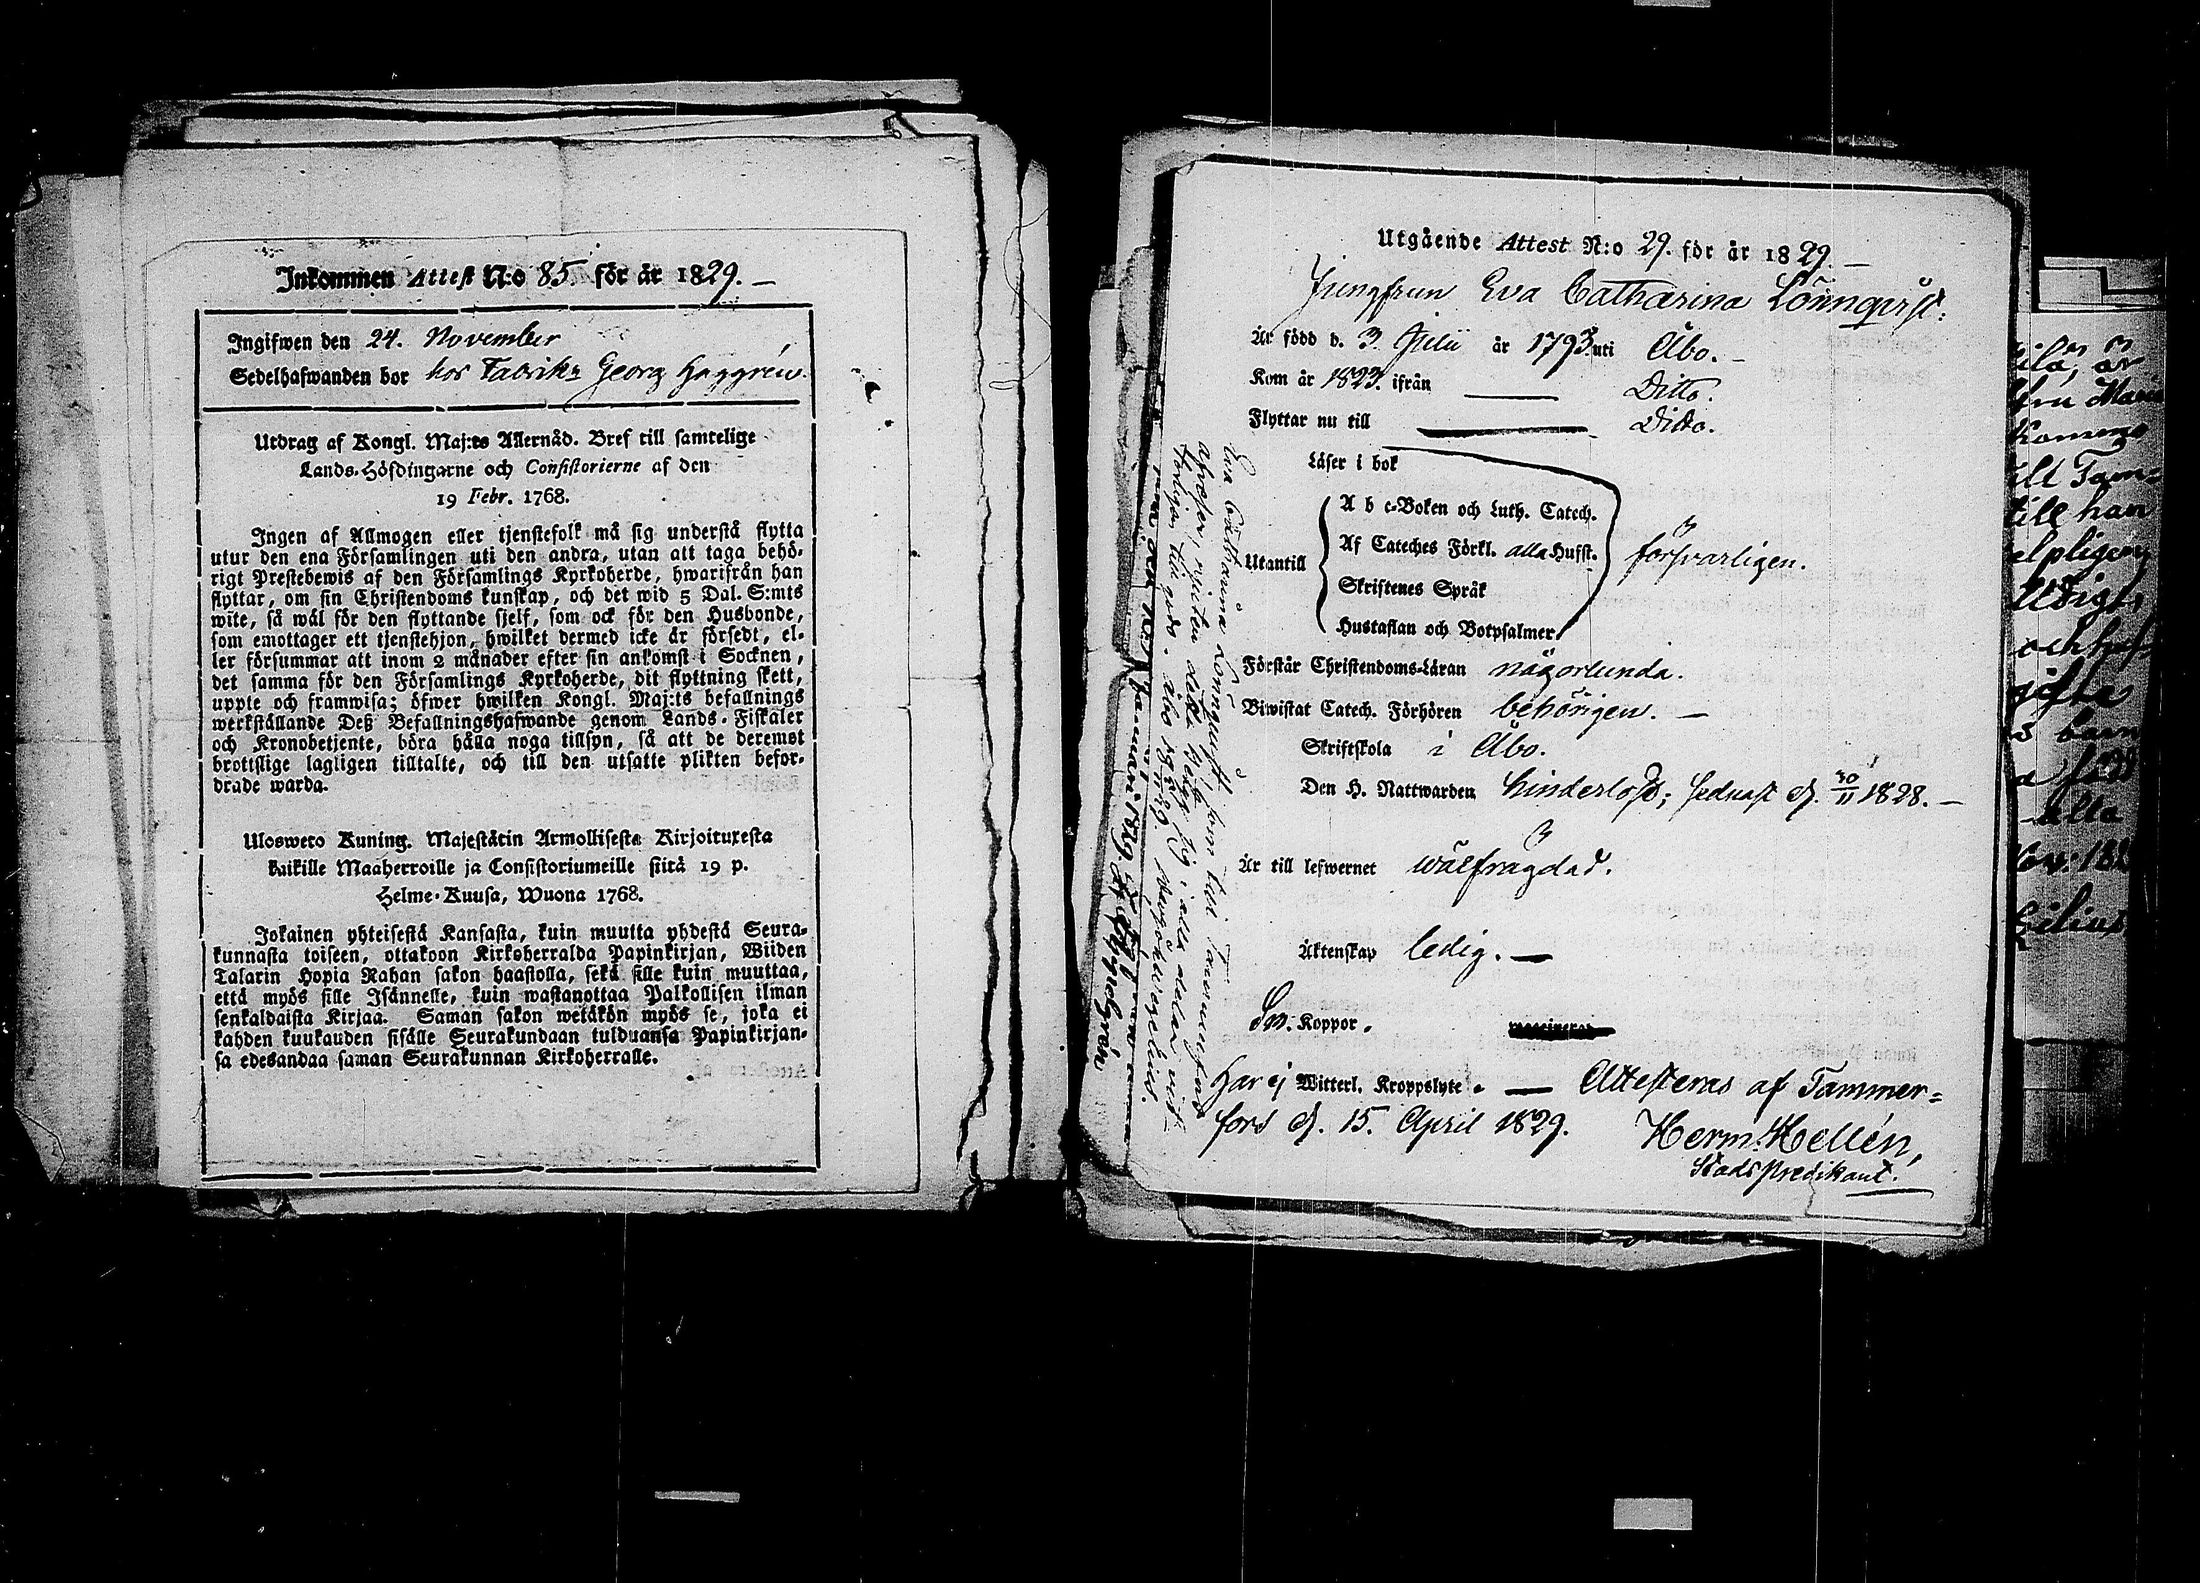 Inkommen Attest N:o 85. för år 1829. —
Ingifwen den 24. November
Sedelhafwanden bor hos Fabrik: Georg Häggrén.
Utdrag af Kongl. Maj:ts Allernåd. Bref till samtelige
Lands-Höfdingarne och Consistorierne af den
19 Febr. 1768.
Ingen af Allmogen eller tjenstefolk må sig understå flytta
utur den ena Församlingen uti den andra, utan att taga behö-
rigt Prestebewis af den Församlings Kyrkoherde, hwarifrån han
flyttar, om sin Christendoms kunskap, och det wid 5 Dal. S:mts
wite, så wäl för den flyttande sjelf, som ock för den Husbonde,
som emottager ett tjenstehjon, hwilket dermed icke är försedt, el-
ler försummar att inom 2 månader efter sin ankomst i Socknen,
det samma för den Församlings Kyrkoherde, dit flyttning skett,
uppte och framwisa; öfwer hwilken Kongl. Maj:ts befallnings
werkställande Deß Befallningshafwande genom Lands-Fiskaler
och Kronobetjente, böra hålla noga tillsyn, så att de deremot
brottslige lagligen tilltalte, och till den utsatte plikten befor-
drade warda.
Ulosweto Kuning. Majestätin Armollisesta Kirjoituxesta
kaikille Maaherroille ja Consistoriumeille siitä 19 p.
Helme-Kuusa, Wuona 1768.
Jokainen yhteisestä Kansasta, kuin muutta yhdestä Seura-
kunnasta toiseen, ottakoon Kirkoherralda Papinkirjan, Wiiden
Talarin Hopia Rahan sakon haastolla, sekä sille kuin muuttaa,
että myös sille Isännelle, kuin wastanottaa Palkollisen ilman
senkaldaista Kirjaa. Saman sakon wetäkön myös se, joka ei
kahden kuukauden sisälle Seurakundaan tulduansa Papinkirjan-
sa edesandaa saman Seurakunnan Kirkoherralle.
Utgående Attest N:o 29. för år 1829. —
Jungfrun Eva Catharina Lönnqvist.
Är född d. 3 Julii år 1793. uti Åbo. —
Kom år 1823. ifrån Ditto.
Flyttar nu till Ditto.
Läser i bok
Utantill
A b c-Boken och Luth. Catech.
Af Cateches Förkl. alla Hufst.
Skriftenes Språk
Hustaflan och Botpsalmer
försvarligen.
Förstår Christendoms-Läran någorlunda.
Biwistat Catech. Förhören behörigen. —
Skriftskola i Åbo.
Den H. Nattwarden hinderlöst; sednast d. 30/11 1828. —
Är till lefwernet wälfrägdad.
Äktenskap ledig. —
Sm. Koppor.
Har ej Witterl. Kroppslyte. — Attesteras af Tammer=
fors d. 15. April 1829.
Herm. Hellén,
Stads predikant.
Eva Catharina Lönnqvist, som till Tammerfors